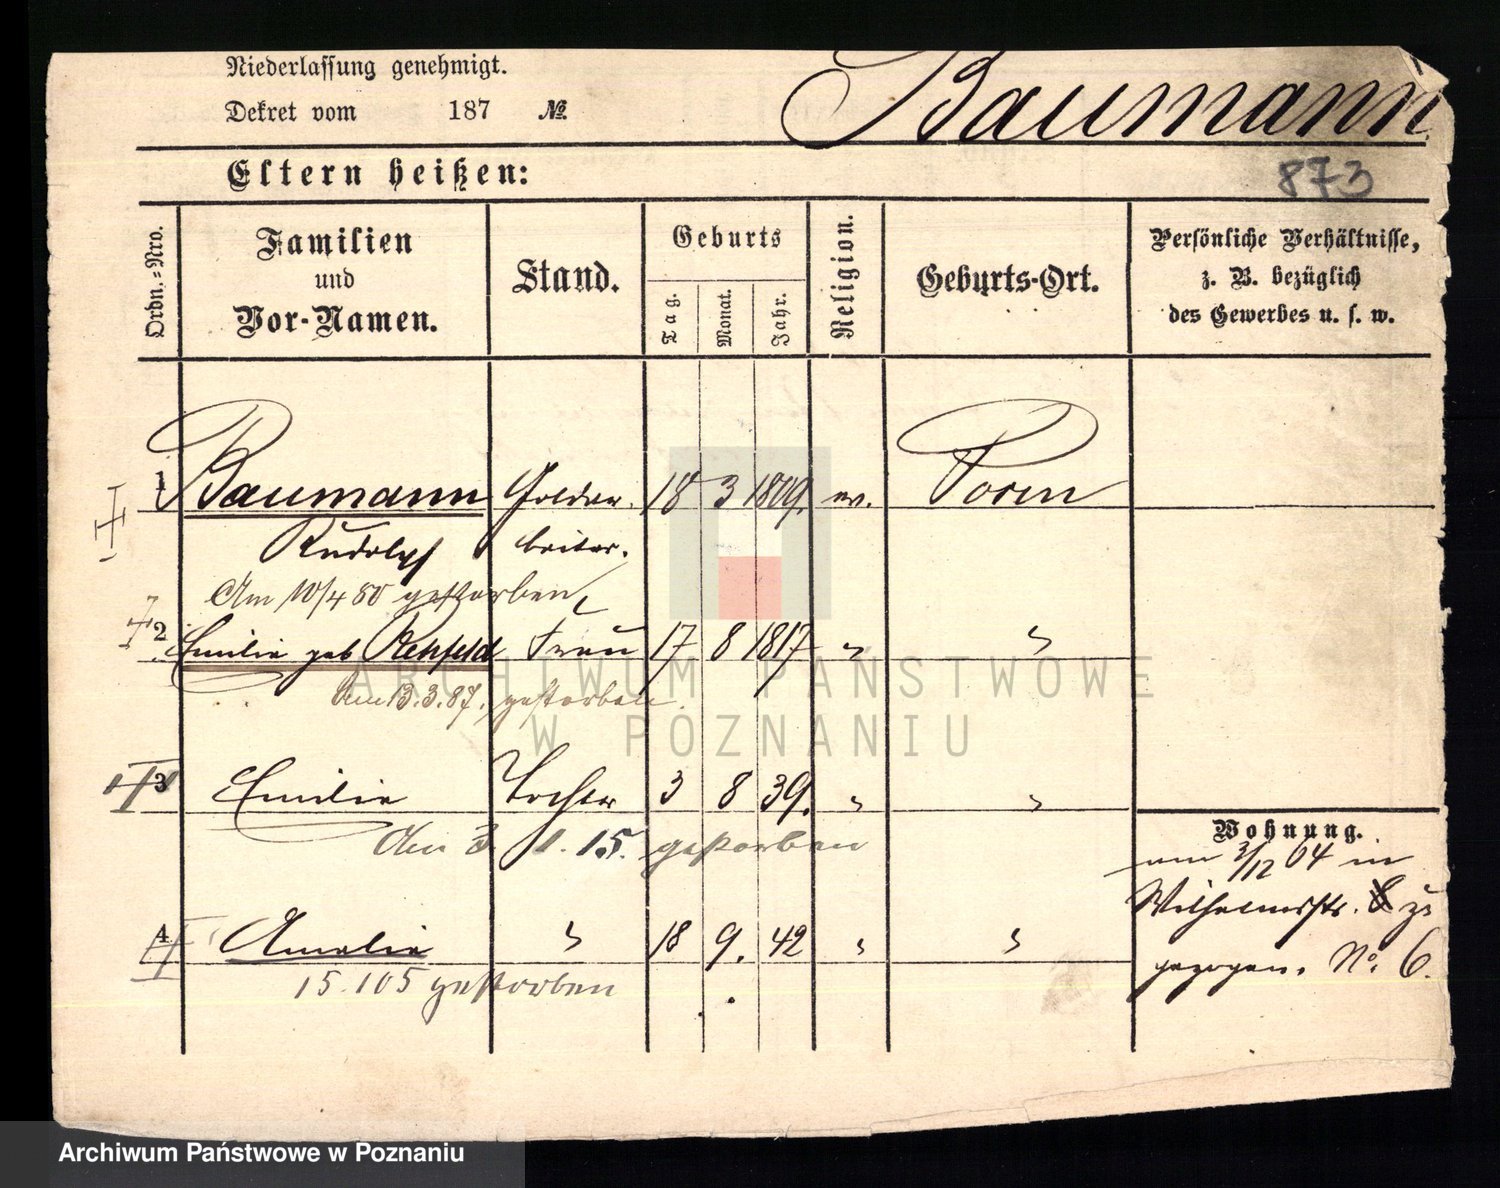 Niederlassung genehmigt.
Dekret vom 187 №
Baumann
873
Eltern heißen:
Ordn.=Nro.
Familien
und
Vor-Namen.
Stand.
Geburts
Tag.
Monat.
Jahr.
Religion.
Geburts-Ort.
Persönliche Verhältnisse,
z. B. bezüglich
des Gewerbes u. s. w.
1 Baumann Goldar. 18 3 1809. ev. Posen
Rudolph beiter.
Am 10/4 80 gestorben
2 Emilie geb Rehfeld Frau 17 8 1817 " "
Am 13.3.87. gestorben.
3 Emilie Tochter 3 8 39. " "
Am 3 1. 15. gestorben
4 Amalie " 18 9. 42 " "
15. 105 gestorben
Wohnung.
am 3/12 04 in
Wilhelmstr. 8 zu
gezogen. No. 6.
ARCHIWUM PAŃSTWOWE
W POZNANIU
Archiwum Państwowe w Poznaniu